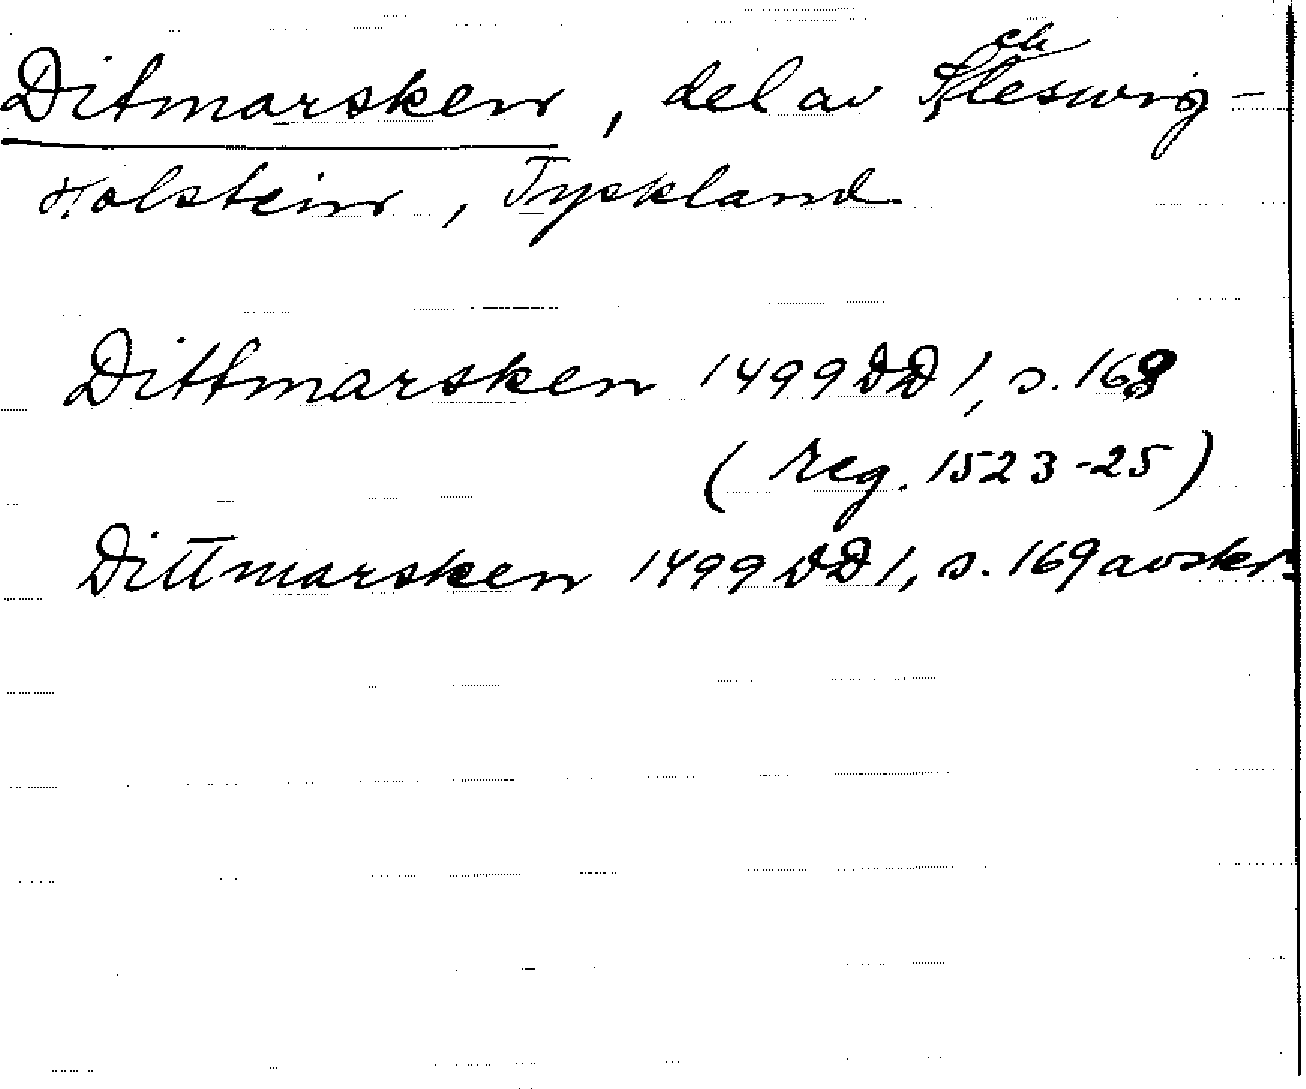 Ditmarsken, del av Schleswig-
Holstein, Tyskland
Dittmarsken 1499 DD 1, s. 169
(reg. 1523-25)
Dittmarsken 1499 DD 1, s. 169 avskr.